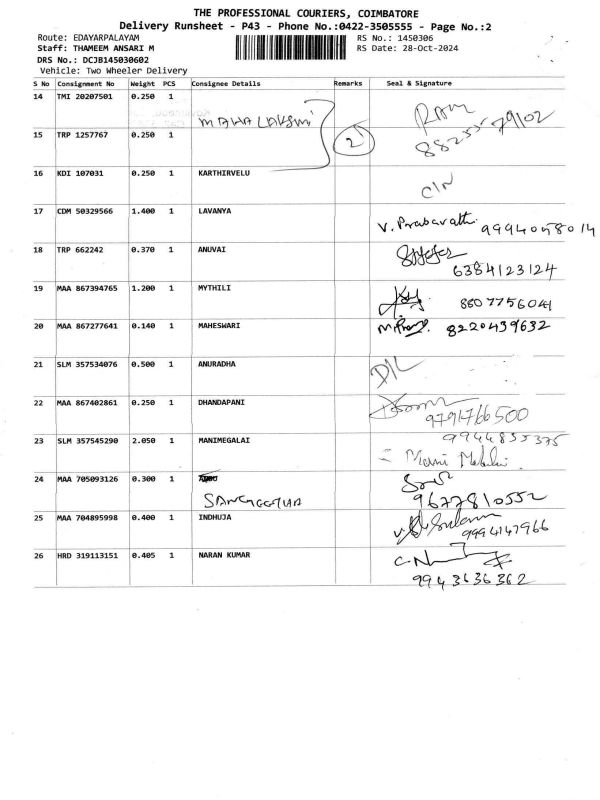 THE PROFESSIONAL COURIERS, COIMBATORE
Delivery Runsheet - P43 - Phone No.:0422-3505555 - Page No.:2
Route: EDAYARPALAYAM RS No.: 1450306
Staff: THAMEEM ANSARI M RS Date: 28-Oct-2024
DRS No.: DCJB145030602
Vehicle: Two Wheeler Delivery
S No Consignment No Weight PCS Consignee Details Remarks Seal & Signature
14 TMI 20207501 0.250 1 MAHA LAKSMI 2 RAM
15 TRP 1257767 0.250 1 88255 79102
16 KDI 107031 0.250 1 KARTHIRVELU C/N
17 CDM 50329566 1.400 1 LAVANYA V. Prabavathi 9994058014
18 TRP 662242 0.370 1 ANUVAI 6384123124
19 MAA 867394765 1.200 1 MYTHILI 8807756041
20 MAA 867277641 0.140 1 MAHESWARI 8220439632
21 SLM 357534076 0.500 1 ANURADHA D/L
22 MAA 867402861 0.250 1 DHANDAPANI 9791766500
23 SLM 357545290 2.050 1 MANIMEGALAI 9944855375
24 MAA 705093126 0.300 1 9677810552
25 MAA 704895998 0.400 1 INDHUJA 9994147966
26 HRD 319113151 0.405 1 NARAN KUMAR
9943636362